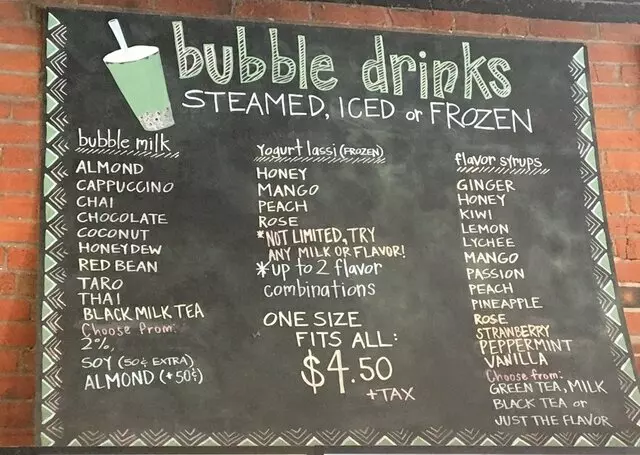 bubble drinks
STEAMED, ICED or FROZEN
bubble milk
ALMOND
CAPPUCCINO
CHAI
CHOCOLATE
COCONUT
HONEYDEW
RED BEAN
TARO
THAI
BLACK MILK TEA
Choose from:
2%,
SOY (50¢ EXTRA)
ALMOND (+50¢)
Yogurt lassi (FROZEN)
HONEY
MANGO
PEACH
ROSE
*NOT LIMITED, TRY
ANY MILK OR FLAVOR!
*up to 2 flavor
combinations
ONE SIZE
FITS ALL:
$4.50
+TAX
flavor syrups
GINGER
HONEY
KIWI
LEMON
LYCHEE
MANGO
PASSION
PEACH
PINEAPPLE
ROSE
STRAWBERRY
PEPPERMINT
VANILLA
Choose from:
GREEN TEA, MILK
BLACK TEA or
JUST THE FLAVOR